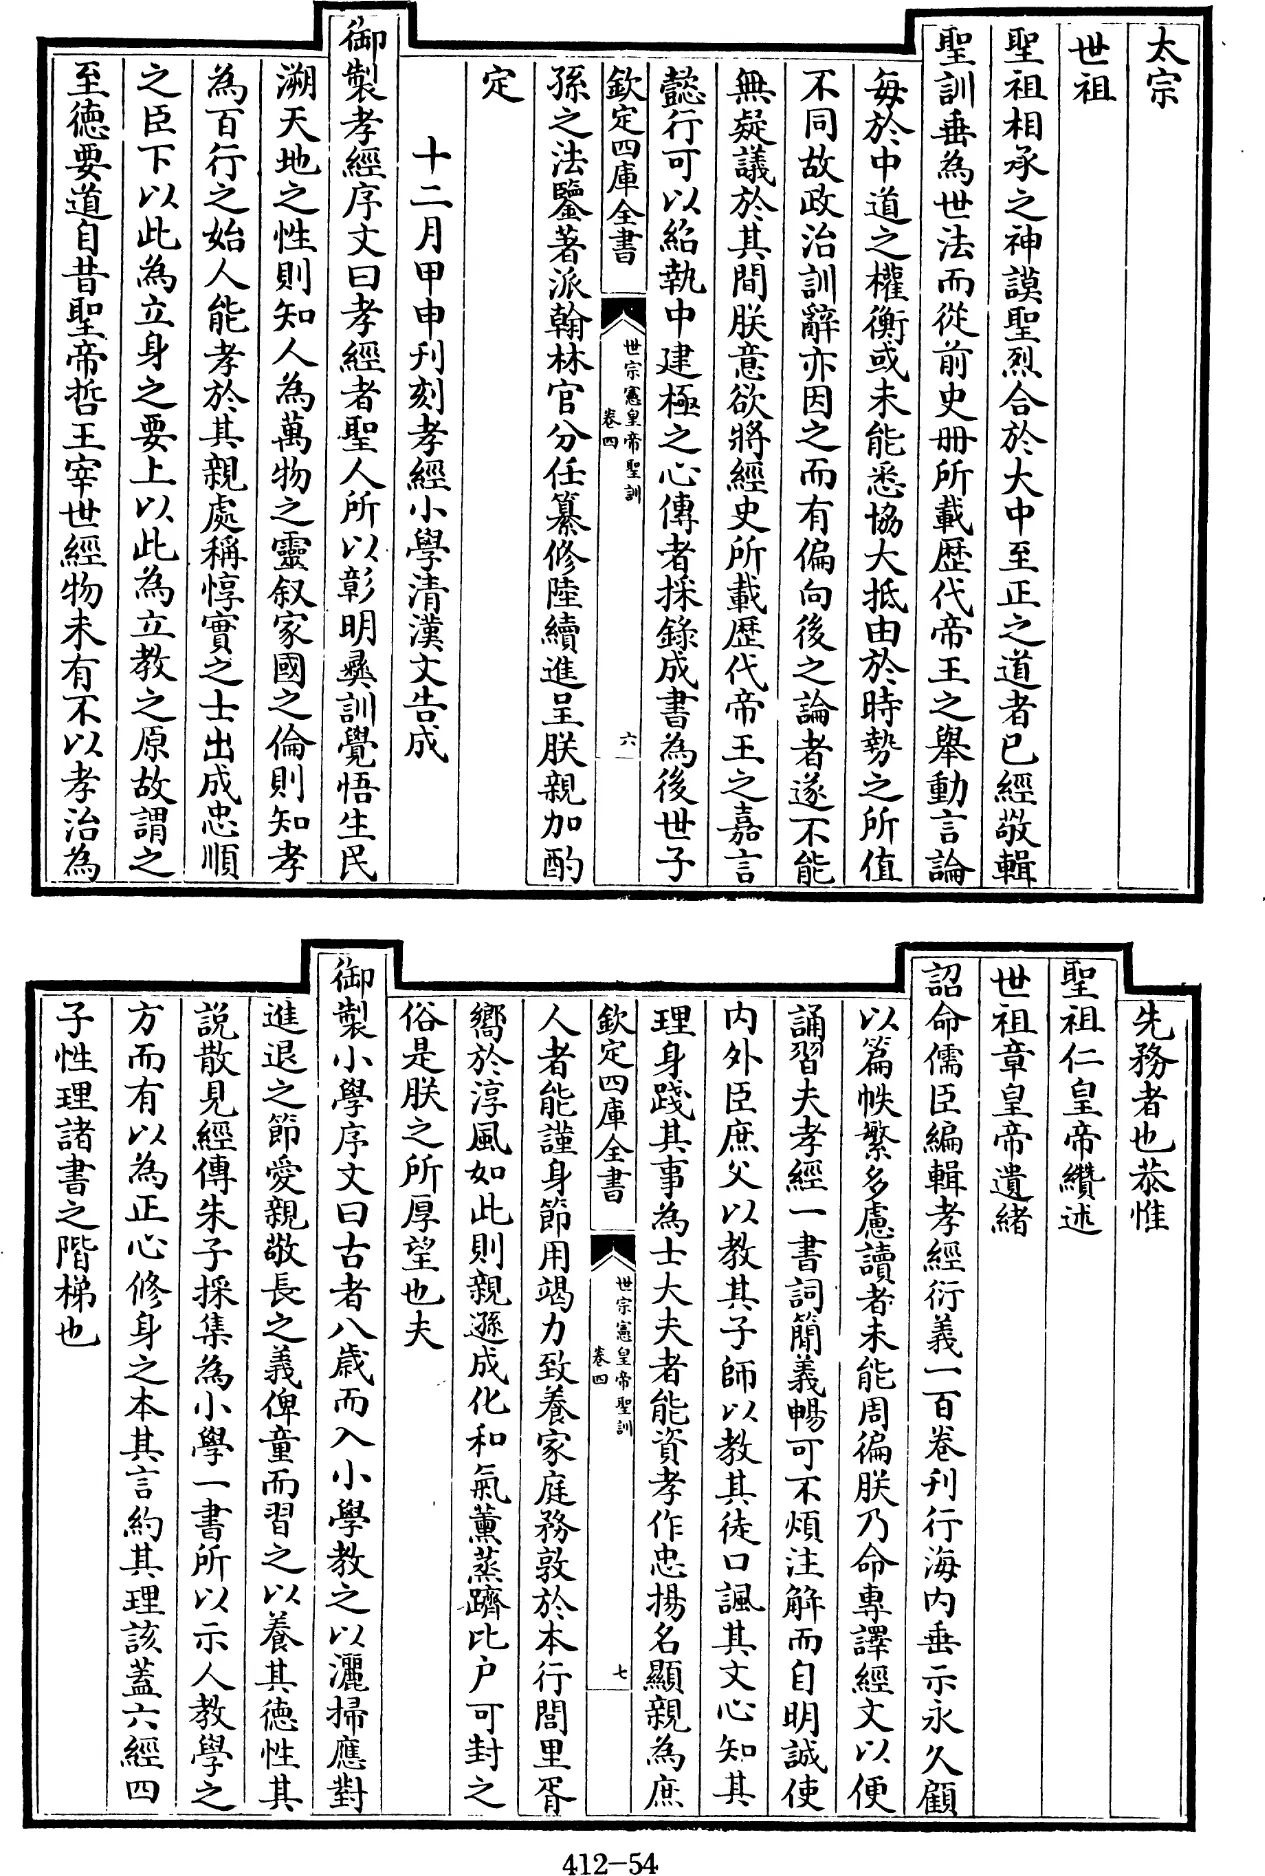 太宗
世祖
聖祖相承之神謨聖烈合於大中至正之道者已經敬輯
聖訓垂為世法而從前史冊所載歴代帝王之舉動言論
每於中道之權衡或未能悉協大抵由於時勢之所值
不同故政治訓辭亦因之而有偏向後之論者遂不能
無疑議於其間朕意欲將經史所載歴代帝王之嘉言
懿行可以紹執中建極之心傳者採錄成書為後世子
欽定四庫全書
世宗憲皇帝聖訓
卷四
六
孫之法鑒著派翰林官分任纂修陸續進呈朕親加酌
定
十二月甲申刋刻孝經小學清漢文告成
御製孝經序文曰孝經者聖人所以彰明彛訓覺悟生民
溯天地之性則知人為萬物之靈叙家國之倫則知孝
為百行之始人能孝於其親處稱惇實之士出成忠順
之臣下以此為立身之要上以此為立教之原故謂之
至德要道自昔聖帝哲王宰世經物未有不以孝治為
先務者也恭惟
聖祖仁皇帝纘述
世祖章皇帝遺緒
詔命儒臣編輯孝經衍義一百卷刋行海内垂示永久顧
以篇帙繁多慮讀者未能周徧朕乃命專譯經文以便
誦習夫孝經一書詞簡義暢可不煩注解而自明誠使
内外臣庶父以教其子師以教其徒口諷其文心知其
理身踐其事為士大夫者能資孝作忠揚名顯親為庶
欽定四庫全書
世宗憲皇帝聖訓
卷四
七
人者能謹身節用竭力致養家庭務敦於本行閭里胥
嚮於淳風如此則親遜成化和氣薰蒸躋比户可封之
俗是朕之所厚望也夫
御製小學序文曰古者八歳而入小學教之以灑掃應對
進退之節愛親敬長之義俾童而習之以養其德性其
說散見經傳朱子採集為小學一書所以示人教學之
方而有以為正心修身之本其言約其理該葢六經四
子性理諸書之階梯也
412-54